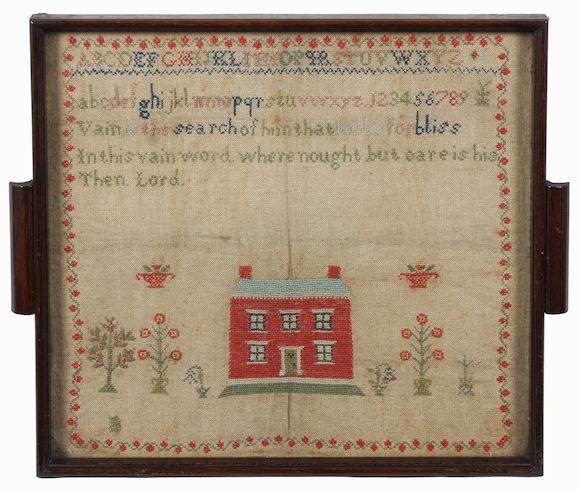 ABCDEFGHIJKLMNOPQRSTUVWXYZ
abcdefghijklmnopqrstuvwxyz.123456789
Vain is the search of him that looks for bliss
In this vain word. where nought but care is his
Then Lord.